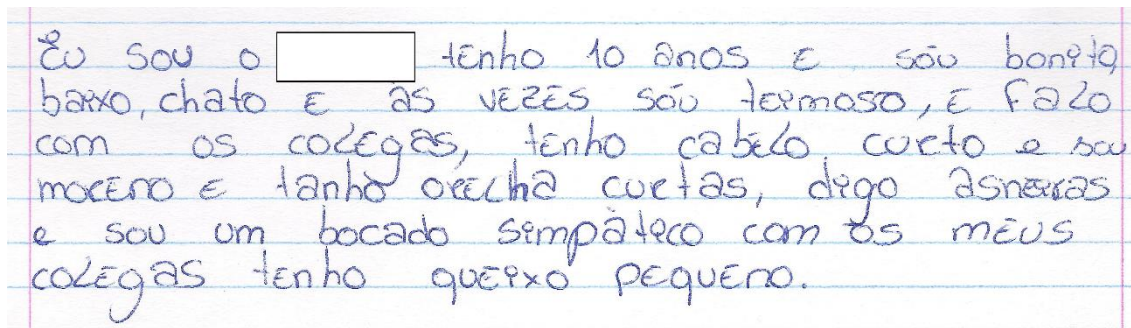 Eu sou o tenho 10 anos e sóu bonito,
baixo, chato e às vezes sóu teimoso, e falo
com os colegas, tenho cabelo curto e sou
moreno e tanho orelha curtas, digo asneiras
e sou um bocado simpàtico com os meus
colegas tenho queixo pequeno.